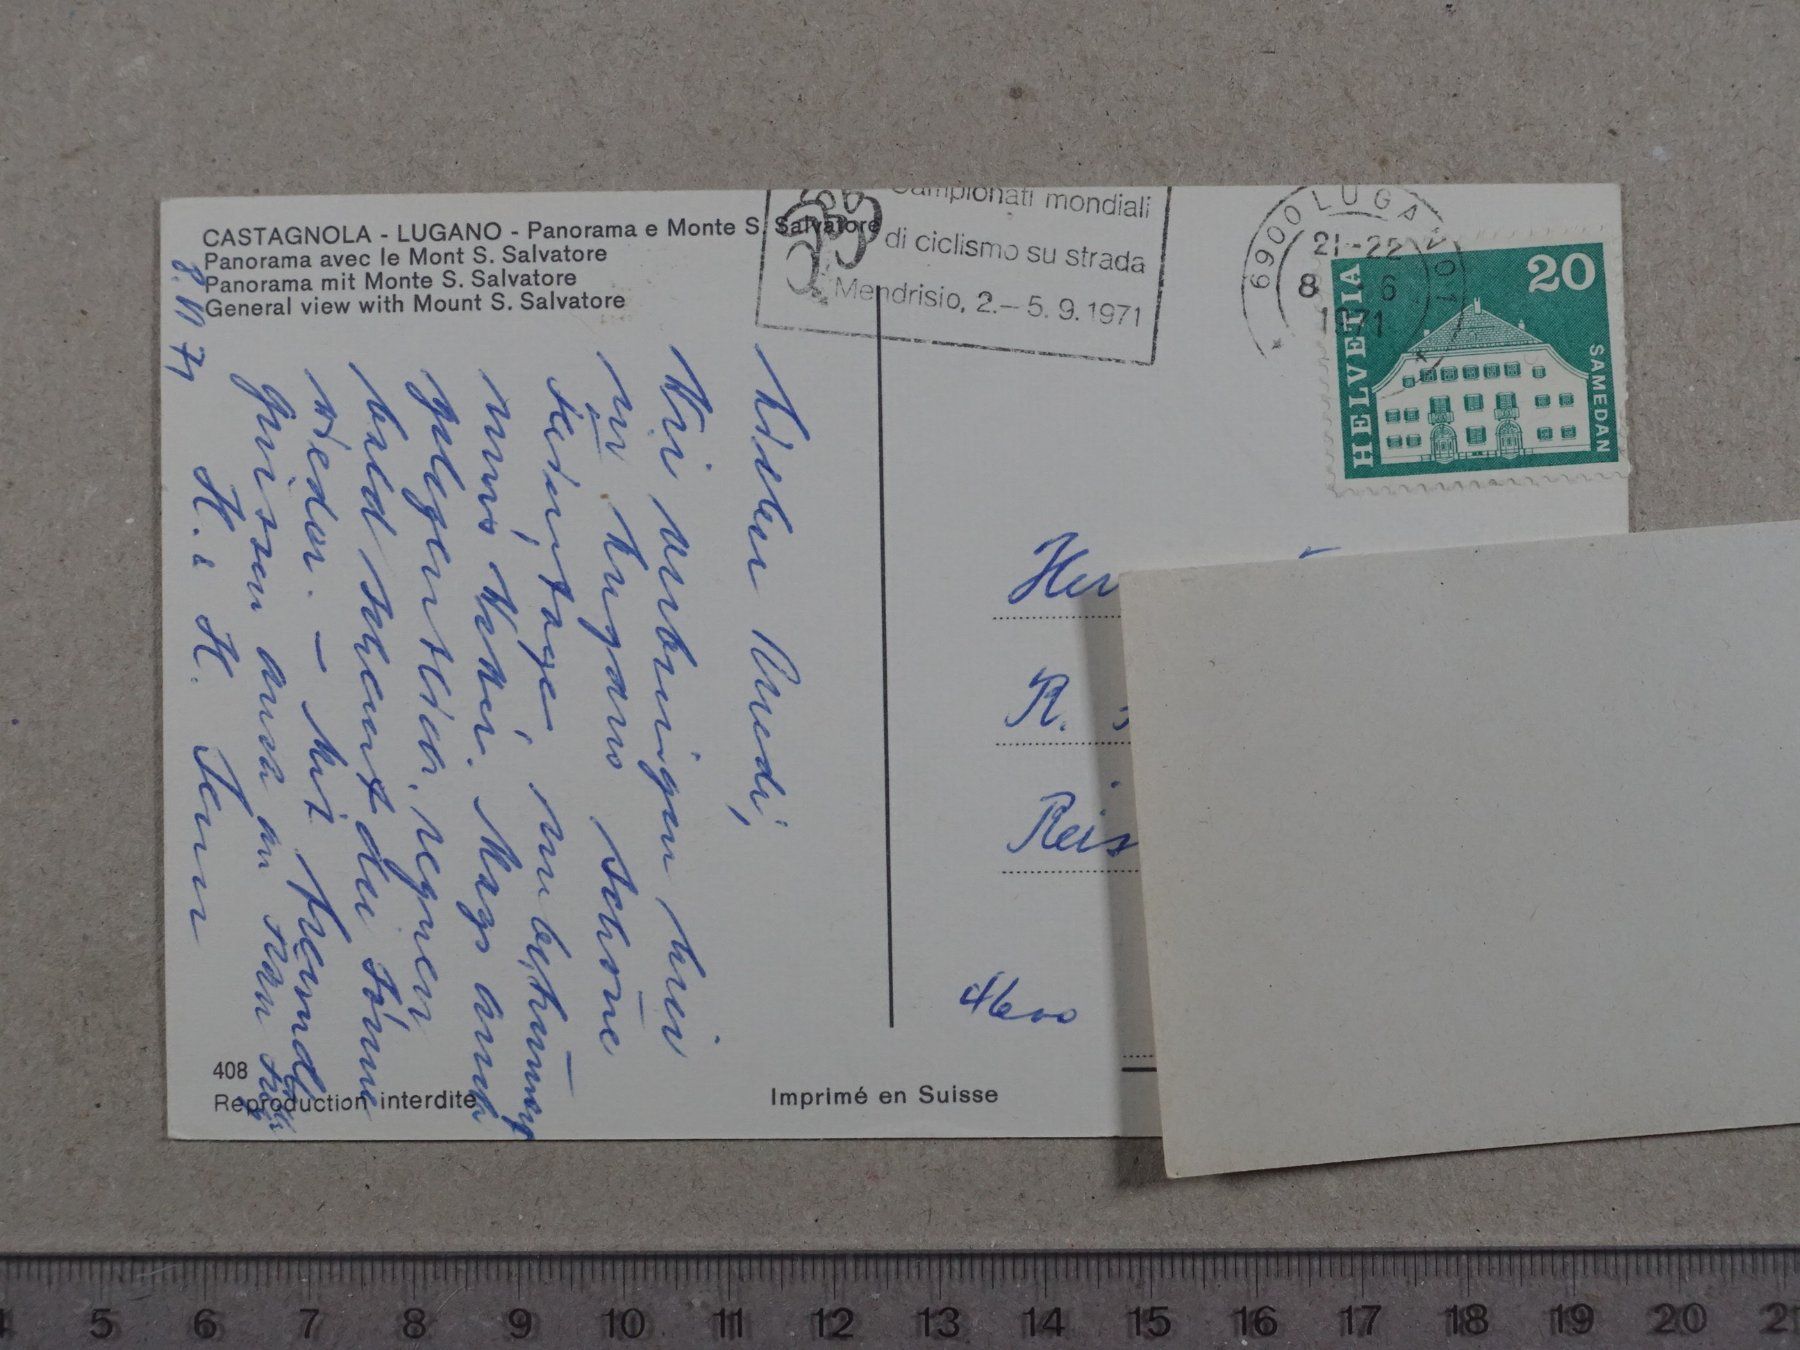 CASTAGNOLA - LUGANO - Panorama e Monte S. Salvatore
Panorama avec le Mont S. Salvatore
Panorama mit Monte S. Salvatore
General view with Mount S. Salvatore
Campionati mondiali
di ciclismo su strada
Mendrisio, 2.-5.9.1971
6900 LUGANO 1
21-22
8 6
1971
HELVETIA
20
SAMEDAN
8. VI 71
Lieber Ruedi,
Wir verbringen hier
in Lugano schöne
Ferientage,
Mags auch
gelegentlich regnen
bald scheint die Sonne
wieder. - Mit freundl
Grüssen auch an
H. & H.
R.
Reis
408
Reproduction interdite
Imprimé en Suisse
4 5 6 7 8 9 10 11 12 13 14 15 16 17 18 19 20 21